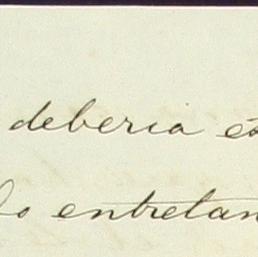 deberia es
lo entretan